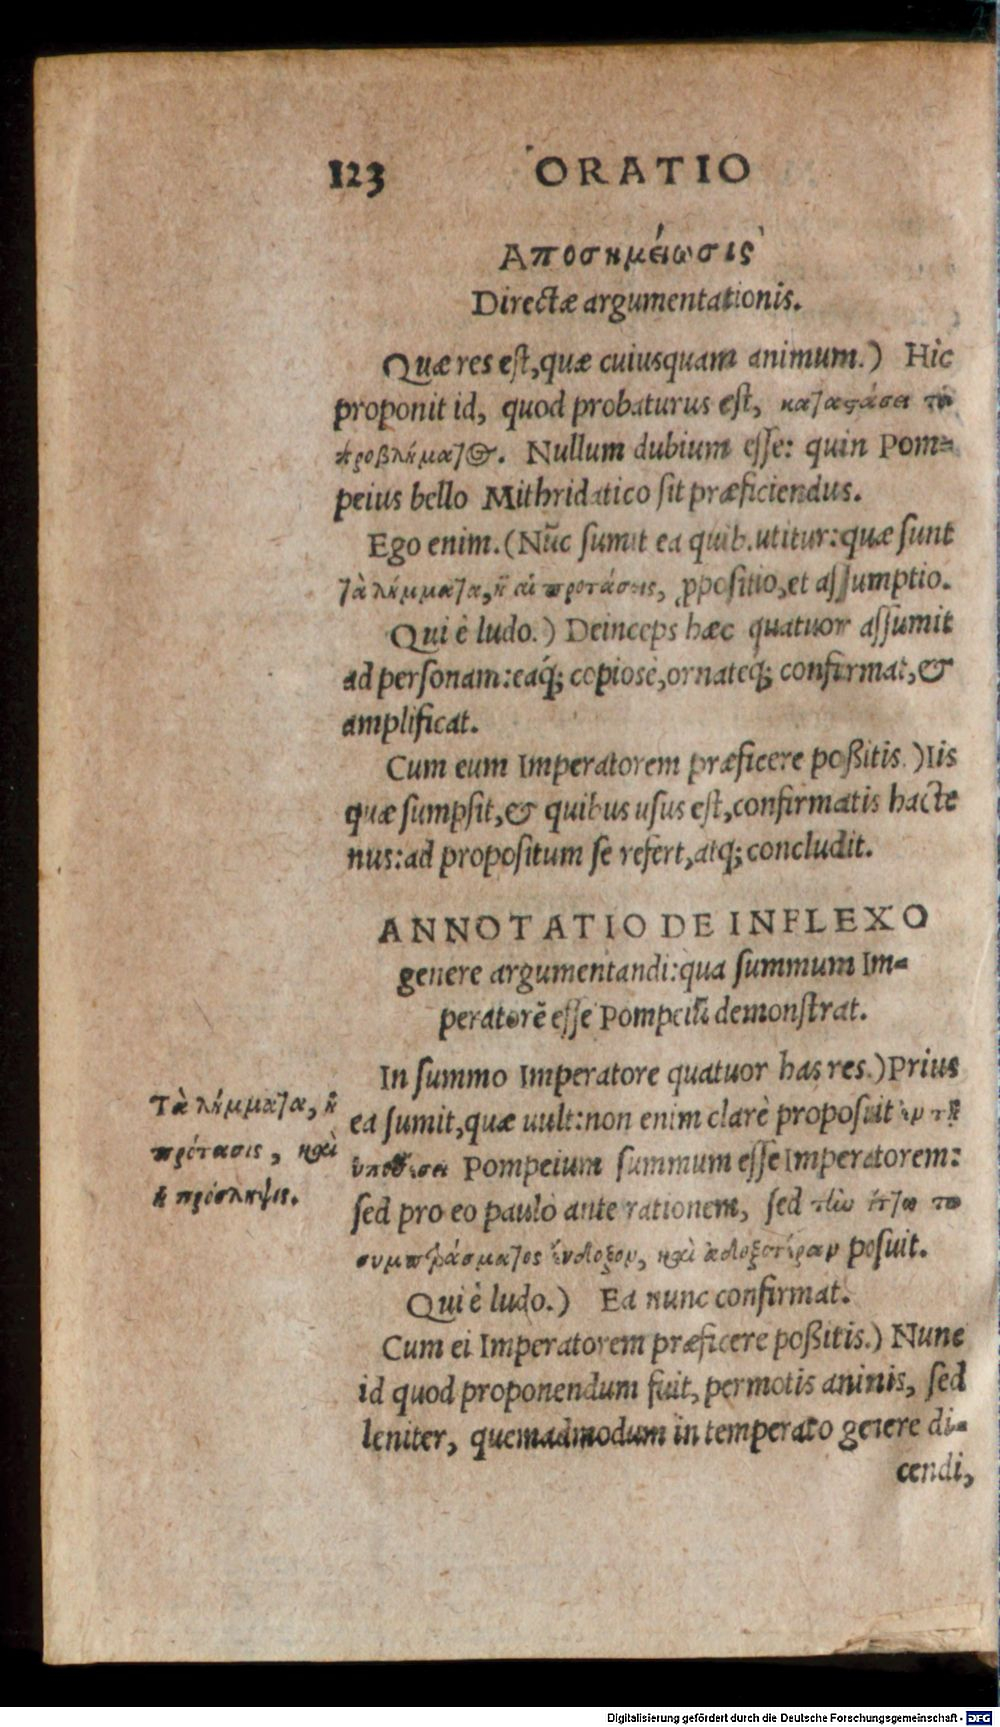 123 ORATIO
Αποσημείωσις
Directæ argumentationis.
Quæ res est, quæ cuiusquam animum.) Hic
proponit id, quod probaturus est, καταφάσει τοῦ
προβλήματος. Nullum dubium esse: quin Pom=
peius bello Mithridatico sit præficiendus.
Ego enim.(Nũc sumit ea quib. utitur: quæ sunt
τὰ λήμματα, ἢ αἱ προτάσεις, ꝓpositio, et assumptio.
Qui è ludo.) Deinceps hæc quatuor assumit
ad personam: eaq́; copiosè, ornateq́; confirmat, &
amplificat.
Cum eum Imperatorem præficere poßitis.) Iis
quæ sumpsit, & quibus usus est, confirmatis hacte
nus: ad propositum se refert, atq; concludit.
ANNOTATIO DE INFLEXO
genere argumentandi: qua summum Im=
peratorẽ esse Pompeiũ demonstrat.
In summo Imperatore quatuor has res.) Prius
ea sumit, quæ uult: non enim clarè proposuit ἐν τῇ
ὑποθέσει Pompeium summum esse Imperatorem:
sed pro eo paulò ante rationem, sed
συμπεράσματος ἔνδοξον, καὶ posuit.
Qui è ludo.) Ea nunc confirmat.
Cum ei Imperatorem præficere poßitis.) Nunc
id quod proponendum fuit, permotis animis, sed
leniter, quemadmodum in temperato genere di=
cendi,
Τὰ λήμματα, ἢ
πρότασις, καὶ
ἡ πρόσληψις.
Digitalisierung gefördert durch die Deutsche Forschungsgemeinschaft - DFG